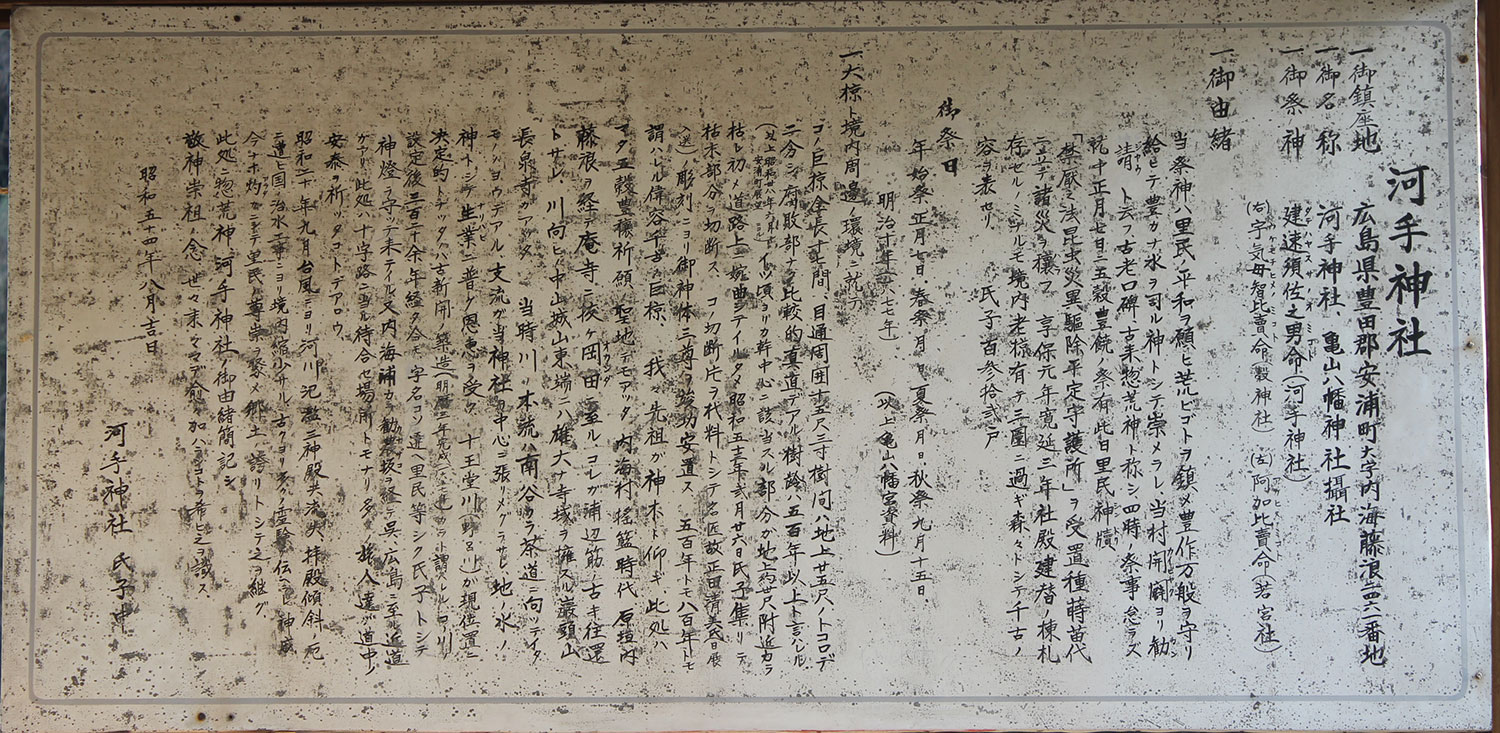 河手神社
一御鎮座地 広島県豊田郡安浦町大字内海藤浪二四六二番地
一御名称 河手神社、亀山八幡神社攝社
一御祭神 建速須佐之男命(河手神社)
(右)宇気母智比賣命(穀神社) (左)阿加比賣命(若宮社)
一御由緒
当祭神ハ里民ノ平和ヲ願ヒ荒ルヒコトヲ鎮メ豊作万般ヲ守リ
給ヒテ豊カナ水ヲ司ル神トシテ崇メラレ当村開闢ヨリ勧
請ト云フ古老口碑古来惣荒神ト称シ四時ノ祭事怠ラズ
就中正月七日ニ五穀豊饒ノ祭有此日里民神牘
「禁厭之法昆虫災異驅除平定守護所」ヲ受置種蒔苗代
ニ立テ諸災ヲ穰フ 享保元年寛延三年社殿建替ノ棟札
存セルノミナルモ境内老椋有テ三圍ニ過ギ森々トシテ千古ノ
容ヲ表セリ 氏子百参拾弐戸
御祭日
年始祭正月七日、春祭 月 日、夏祭 月 日、秋祭九月十五日、
明治十年(一八七七年) (以上亀山八幡宮資料)
一大椋ト境内周邊ノ環境ニ就テ
コノ巨椋全長十七間、目通周囲十五尺三寸樹間ハ地上廿五尺ノトコロデ
二分シ腐敗部ナク比較的真直デアル樹齢ハ五百年以上ト言ハレル
イツ頃ヨリカ幹中心ニ該当スル部分ガ地上約廿尺附近カラ
枯レ初メ道路上ニ婉曲シテイルタメ昭和五十三年弐月廿六日氏子集リテ
枯木部分ヲ切断ス、コノ切断片ヲ材料トシテ名匠故正田清美氏(日展
入選)ノ彫刻ニヨリ御神体三尊ヲ竣功安置ス 五百年トモ八百年トモ
謂ハレル偉容千古ノ巨椋、我々先祖ガ神木ト仰ギ、此処ハ
マタ五穀豊穣祈願ノ聖地デモアッタ 内海村揺籃時代 原垣内
藤根ヲ経テ庵寺ニ抜ケ岡田ニ至ルコレガ浦辺筋ノ古キ往還
トサレ、川向ヒノ中山城山東端ニハ雄大ナ寺域ヲ擁スル巌頭山
長泉寺ガアッタ 当時川ノ本流ハ南谷カラ茶道ニ向ッテイタ
モノノヨウデアル支流ガ当神社ヲ中心ニ張リメグラサレ地ノ水ノ
神トシテ生業ニ普ク恩恵ヲ受ク 十王堂川(野呂川)ガ現位置ニ
決定的トナッタハ古新開ノ築造(明暦二年完成)
設定後三百二十余年経タ今モ字名コソ違ヘ里民等シク氏子トシテ
神燈ヲ守ッテ来テイル又内海浦カラ勧農坂ヲ経テ呉、広島ニ至ル近道
ガアリ此処ハ十字路ニ当ル待合セ場所トモナリ多クノ旅人達ガ道中ノ
安泰ヲ祈ッタコトデアロウ、
昭和二十年九月台風ニヨリ河川氾濫ニ神殿共流失、拝殿傾斜ノ厄
ニ遭ヒ国治水工事ニヨリ境内縮少サル、古クヨリ多クノ霊験ヲ伝ヘシ神威
今ナホ灼カニシテ里民ノ尊崇ヲ聚メ郷土ノ誇リトシテ之ヲ継グ、
此処ニ惣荒神河手神社ノ御由緒簡記シ
敬神崇祖ノ念ノ世々末々マデ愈ヽ加ハランコトヲ希ヒ之ヲ識ス
昭和五十四年八月吉日
河手神社 氏子中